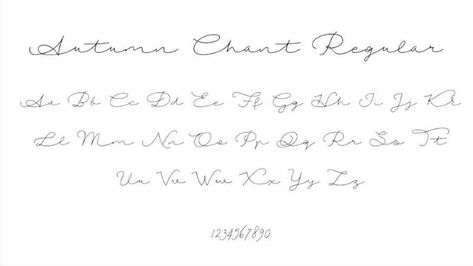 Autumn Chant Regular
Aa Bb Cc Dd Ee Ff Gg Hh Ii Jj Kk
Ll Mm Nn Oo Pp Qq Rr Ss Tt
Uu Vv Ww Xx Yy Zz
1234567890